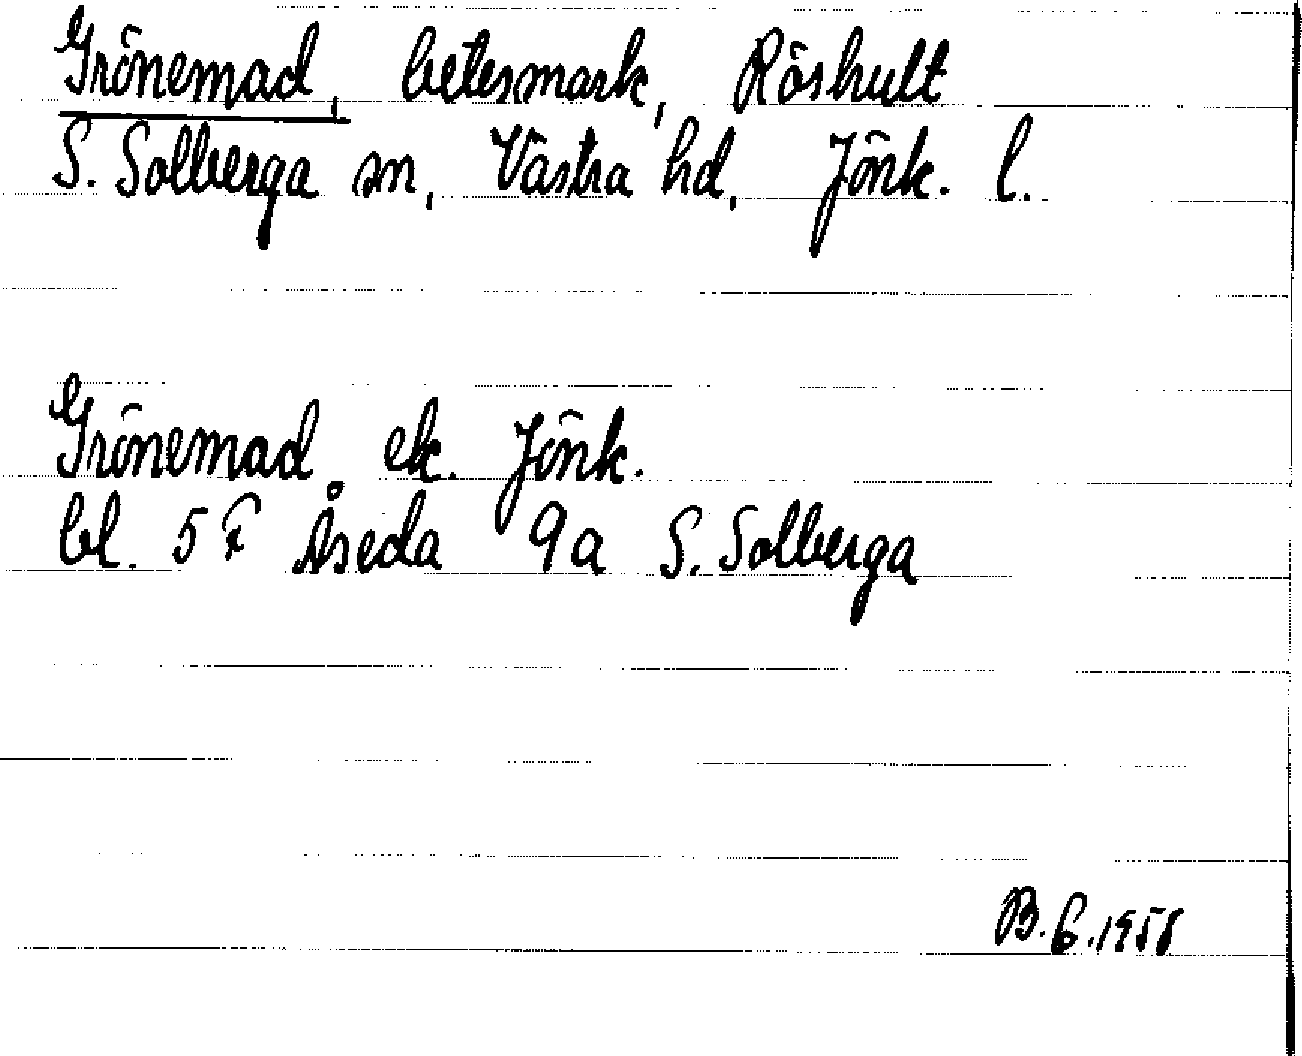 Grönemad, betesmark, Röshult
S. Solberga sn, Västra hd, Jönk. l.
Grönemad, ek. Jönk.
bl. 5 F Åseda 9a S. Solberga
B.G. 1958